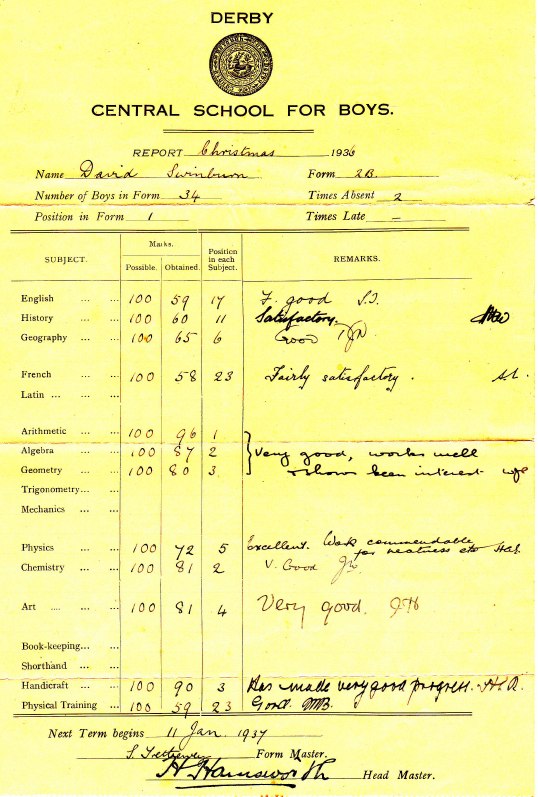 DERBY
CENTRAL SCHOOL FOR BOYS.
REPORT Christmas 1936
Name David Swinburn Form 2B.
Number of Boys in Form 34 Times Absent 2
Position in Form 1 Times Late –
SUBJECT. Marks. Possible. Obtained. Position in each Subject. REMARKS.
English ... ... 100 59 17 F. good S.T.
History ... ... 100 60 11 Satisfactory.
Geography ... 100 65 6 Good
French ... ... 100 58 23 Fairly satisfactory. S.L.
Latin ... ...
Arithmetic ... 100 96 1
Algebra ... ... 100 87 2 Very good, works well
Geometry ... 100 80 3 & shows keen interest
Trigonometry... ...
Mechanics ...
Physics ... ... 100 72 5 Excellent. Work commendable
for neatness etc
Chemistry ... ... 100 81 2 V. Good
Art .... ... 100 81 4 Very good.
Book-keeping... ...
Shorthand ... ...
Handicraft ... ... 100 90 3 Has made very good progress.
Physical Training ... 100 59 23 Good.
Next Term begins 11 Jan. 1937
Form Master.
Head Master.